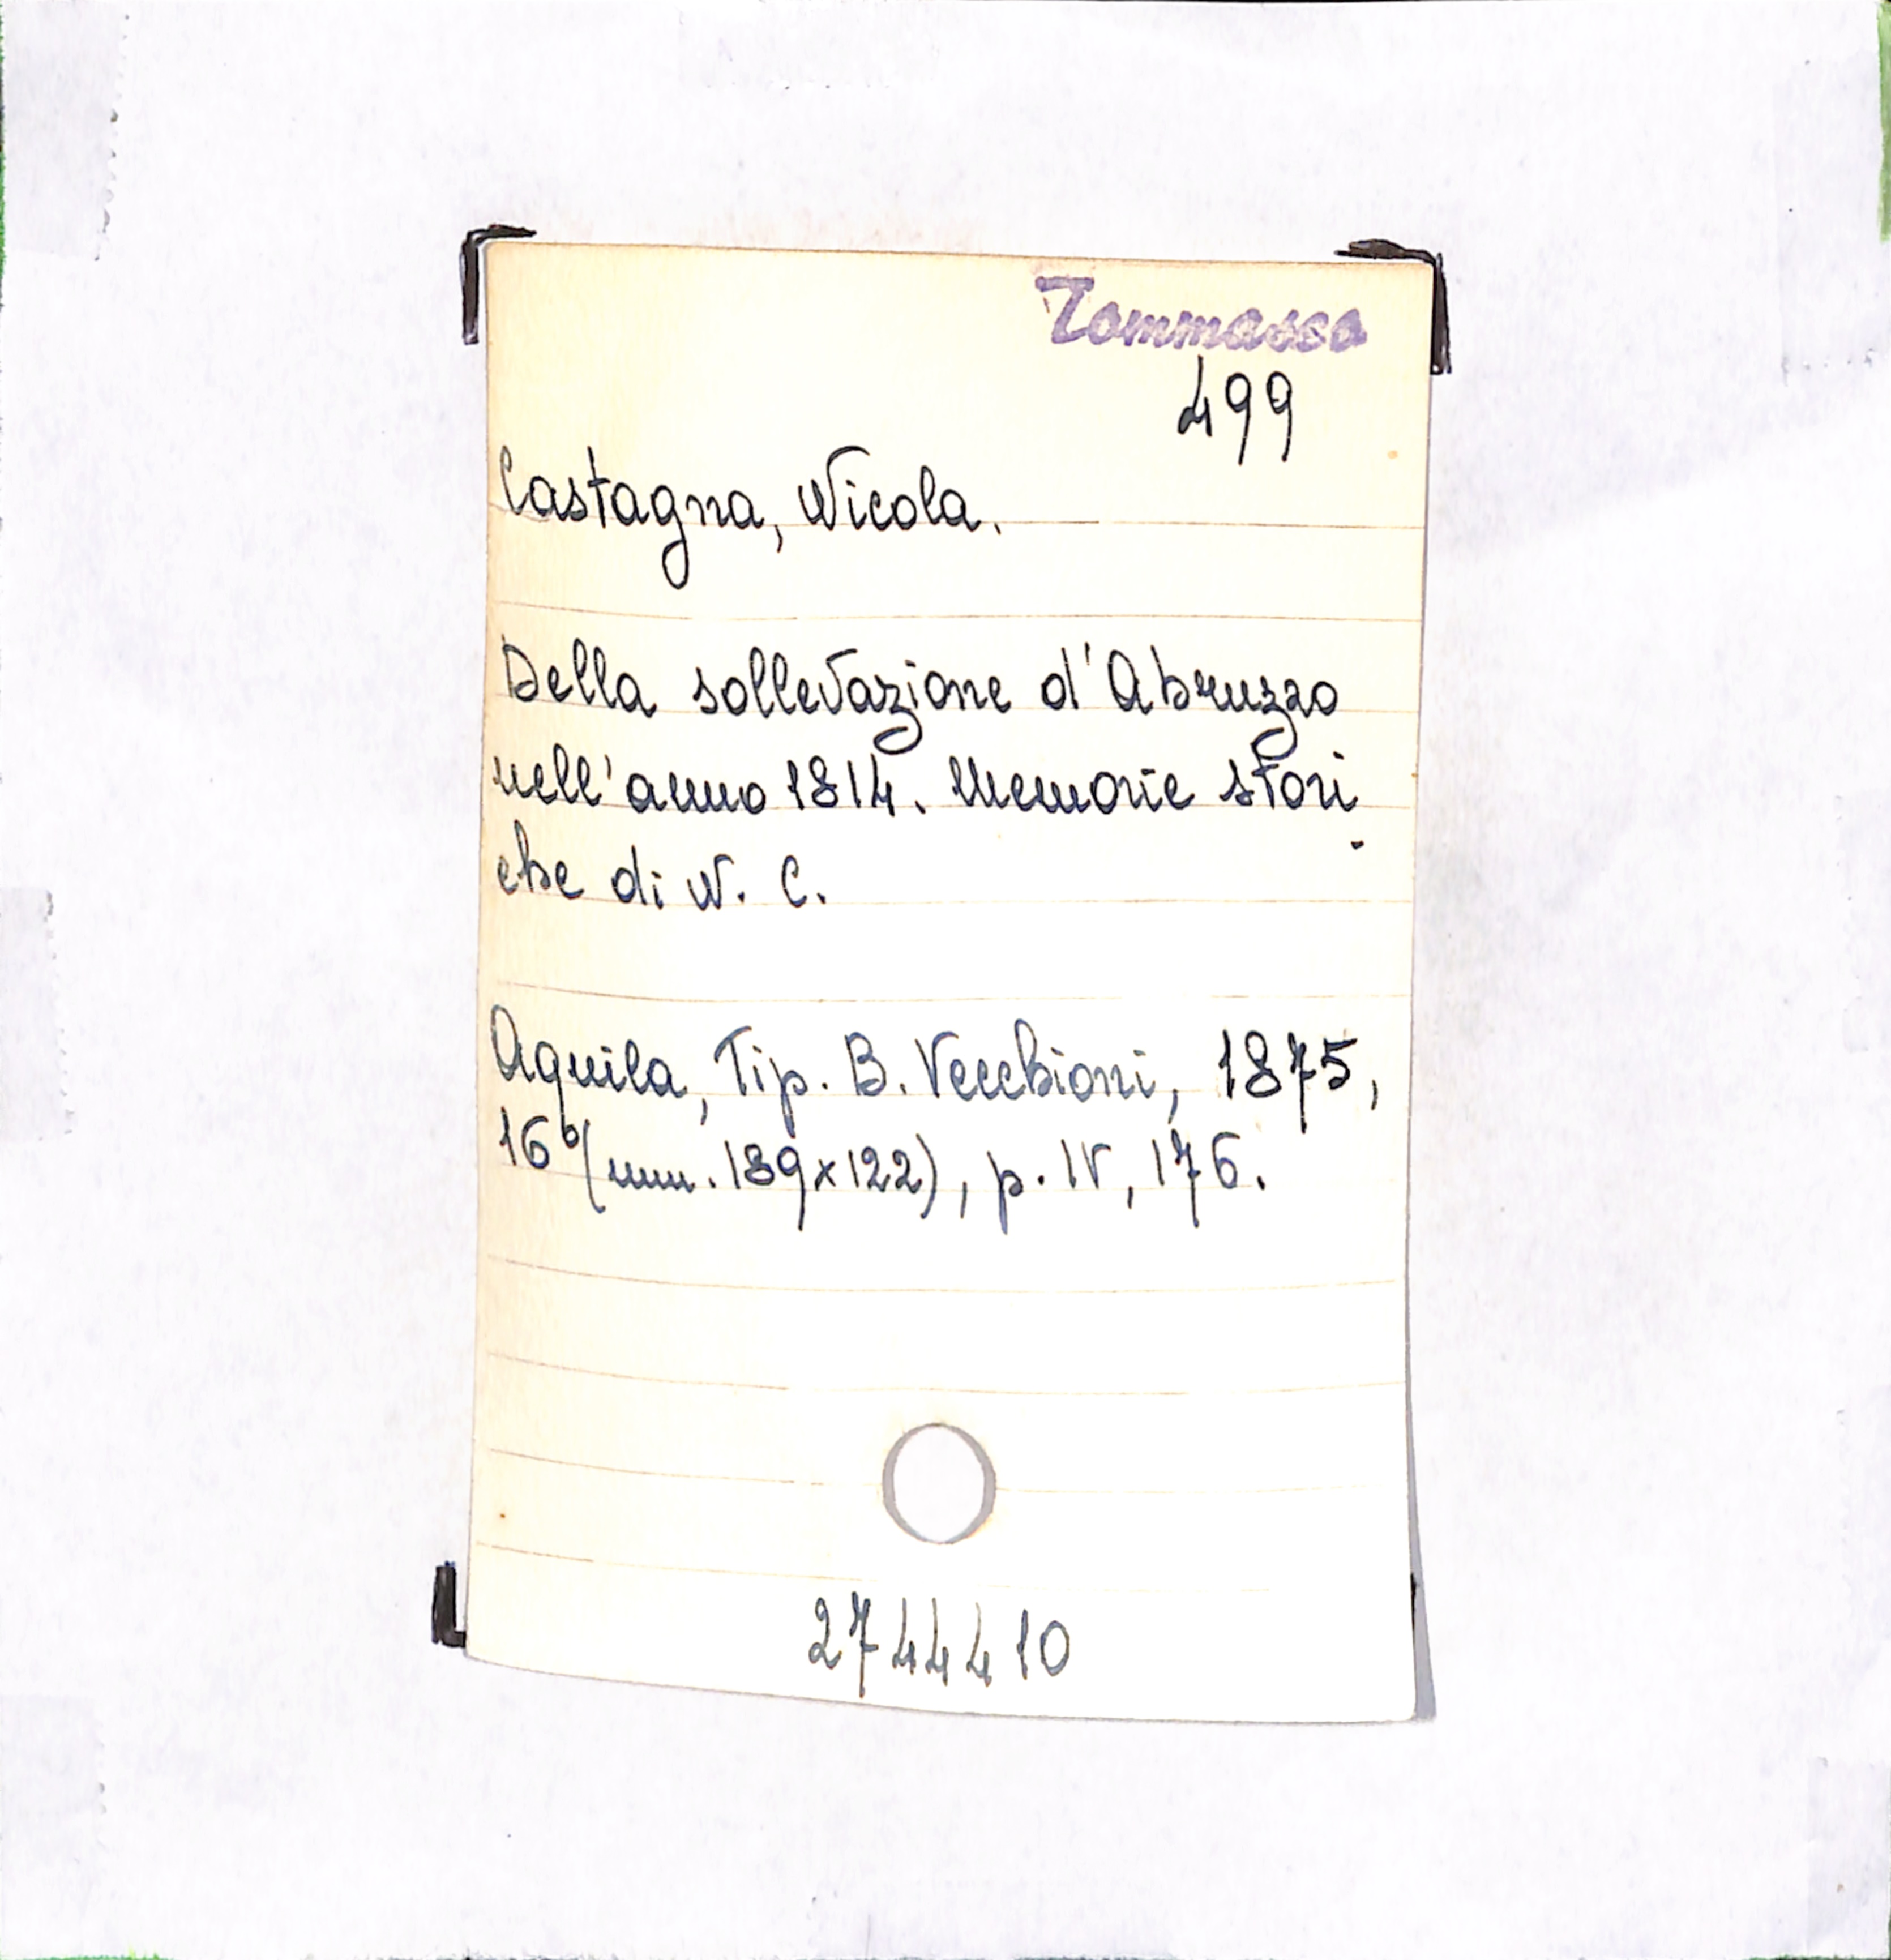 Tommasso
499
Castagna, Nicola.
Della sollevazione d'Abruzzo
nell'anno 1814. Memorie stori-
che di N. C.
Aquila, Tip. B. Vecchioni, 1875,
16° (mm. 189x122), p. IV, 176.
2744410